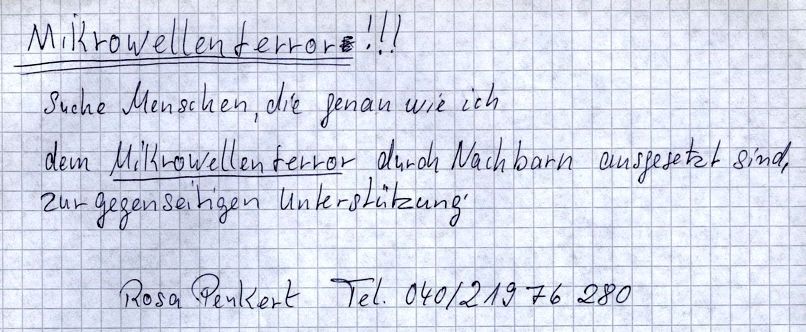 Mikrowellenterror !!!
Suche Menschen, die genau wie ich
dem Mikrowellenterror durch Nachbarn ausgesetzt sind,
zur gegenseitigen Unterstützung
Rosa Penkert Tel. 040/219 76 280